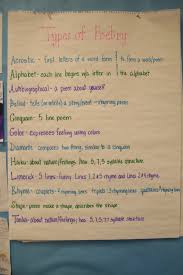 Types of Poetry
Acrostic - first letters of a word form to form a word/poem
Alphabet - each line begins w/a letter in the alphabet
Autobiographical - a poem about yourself
Ballad - tells a story/rhyming poem
Cinquain - 5 line poem
Color - expresses feeling using colors
Diamante - compares two things, similar to a cinquain
Haiku - about nature/feelings has 5, 7, 5 syllable structure
Limerick - 5 lines - funny. Lines 1, 2 rhyme and lines 3, 4 rhyme
Rhyme - couplets - 2 rhyming lines triplets 3 rhyming lines quatrains
Shape - poem makes a shape, describes the shape
Tanka - about nature/feelings; has 5, 7, 5, 7, 7 syllable structure